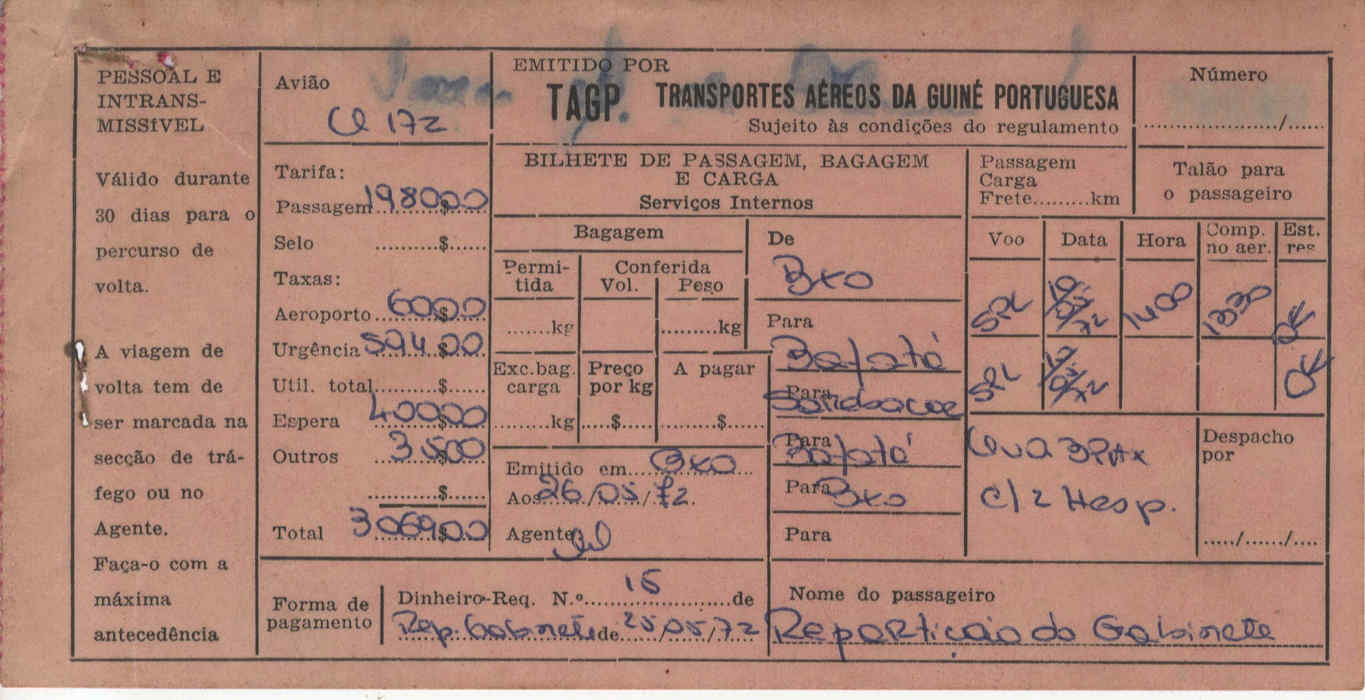 PESSOAL E
INTRANS-
MISSÍVEL
Válido durante
30 dias para o
percurso de
volta.
A viagem de
volta tem de
ser marcada na
secção de trá-
fego ou no
Agente.
Faça-o com a
máxima
antecedência
Avião
Cl 172
Tarifa:
Passagem 1980$00
Selo ..........$......
Taxas:
Aeroporto 60$00
Urgência 594$00
Util. total..........$......
Espera 400$00
Outros 35$00
..........$......
Total 3069$00
EMITIDO POR
TAGP. TRANSPORTES AÉREOS DA GUINÉ PORTUGUESA
Sujeito às condições do regulamento
Número
..................../......
BILHETE DE PASSAGEM, BAGAGEM
E CARGA
Serviços Internos
Passagem
Carga
Frete.........km
Talão para
o passageiro
Bagagem
Permi-
tida
Conferida
Vol. Peso
.......kg .........kg
Exc.bag.
carga
Preço
por kg
A pagar
.........kg ....$..... .........$......
Emitido em Bxo
Aos 26/05/72.
Agente
De
Bxo
Para
Bafatá
Para
Para
Bafatá
Para Bxo
Para
Voo Data Hora Comp.
no aer. Est.
res
SPL 1400 1330 OK
SPL OK
3 PAX
c/2 Hesp.
Despacho
por
...../....../....
Forma de
pagamento
Dinheiro-Req. N.º 15 de
Rep. Gabinete de 25/05/72
Nome do passageiro
Repartição do Gabinete